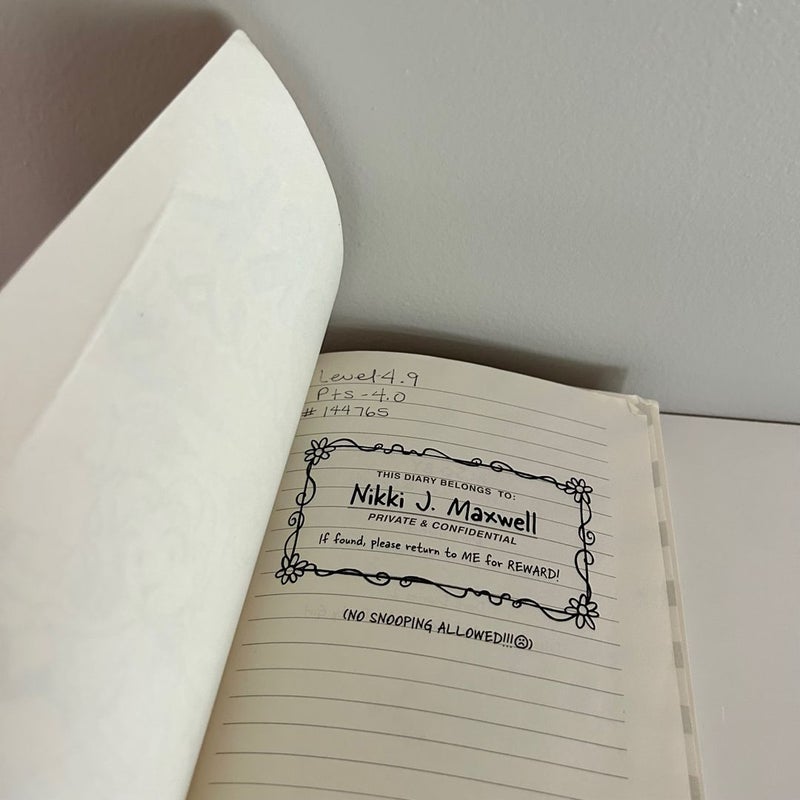 Level-4.9
Pts-4.0
# 144765
THIS DIARY BELONGS TO:
Nikki J. Maxwell
PRIVATE & CONFIDENTIAL
If found, please return to ME for REWARD!
(NO SNOOPING ALLOWED!!!☹)